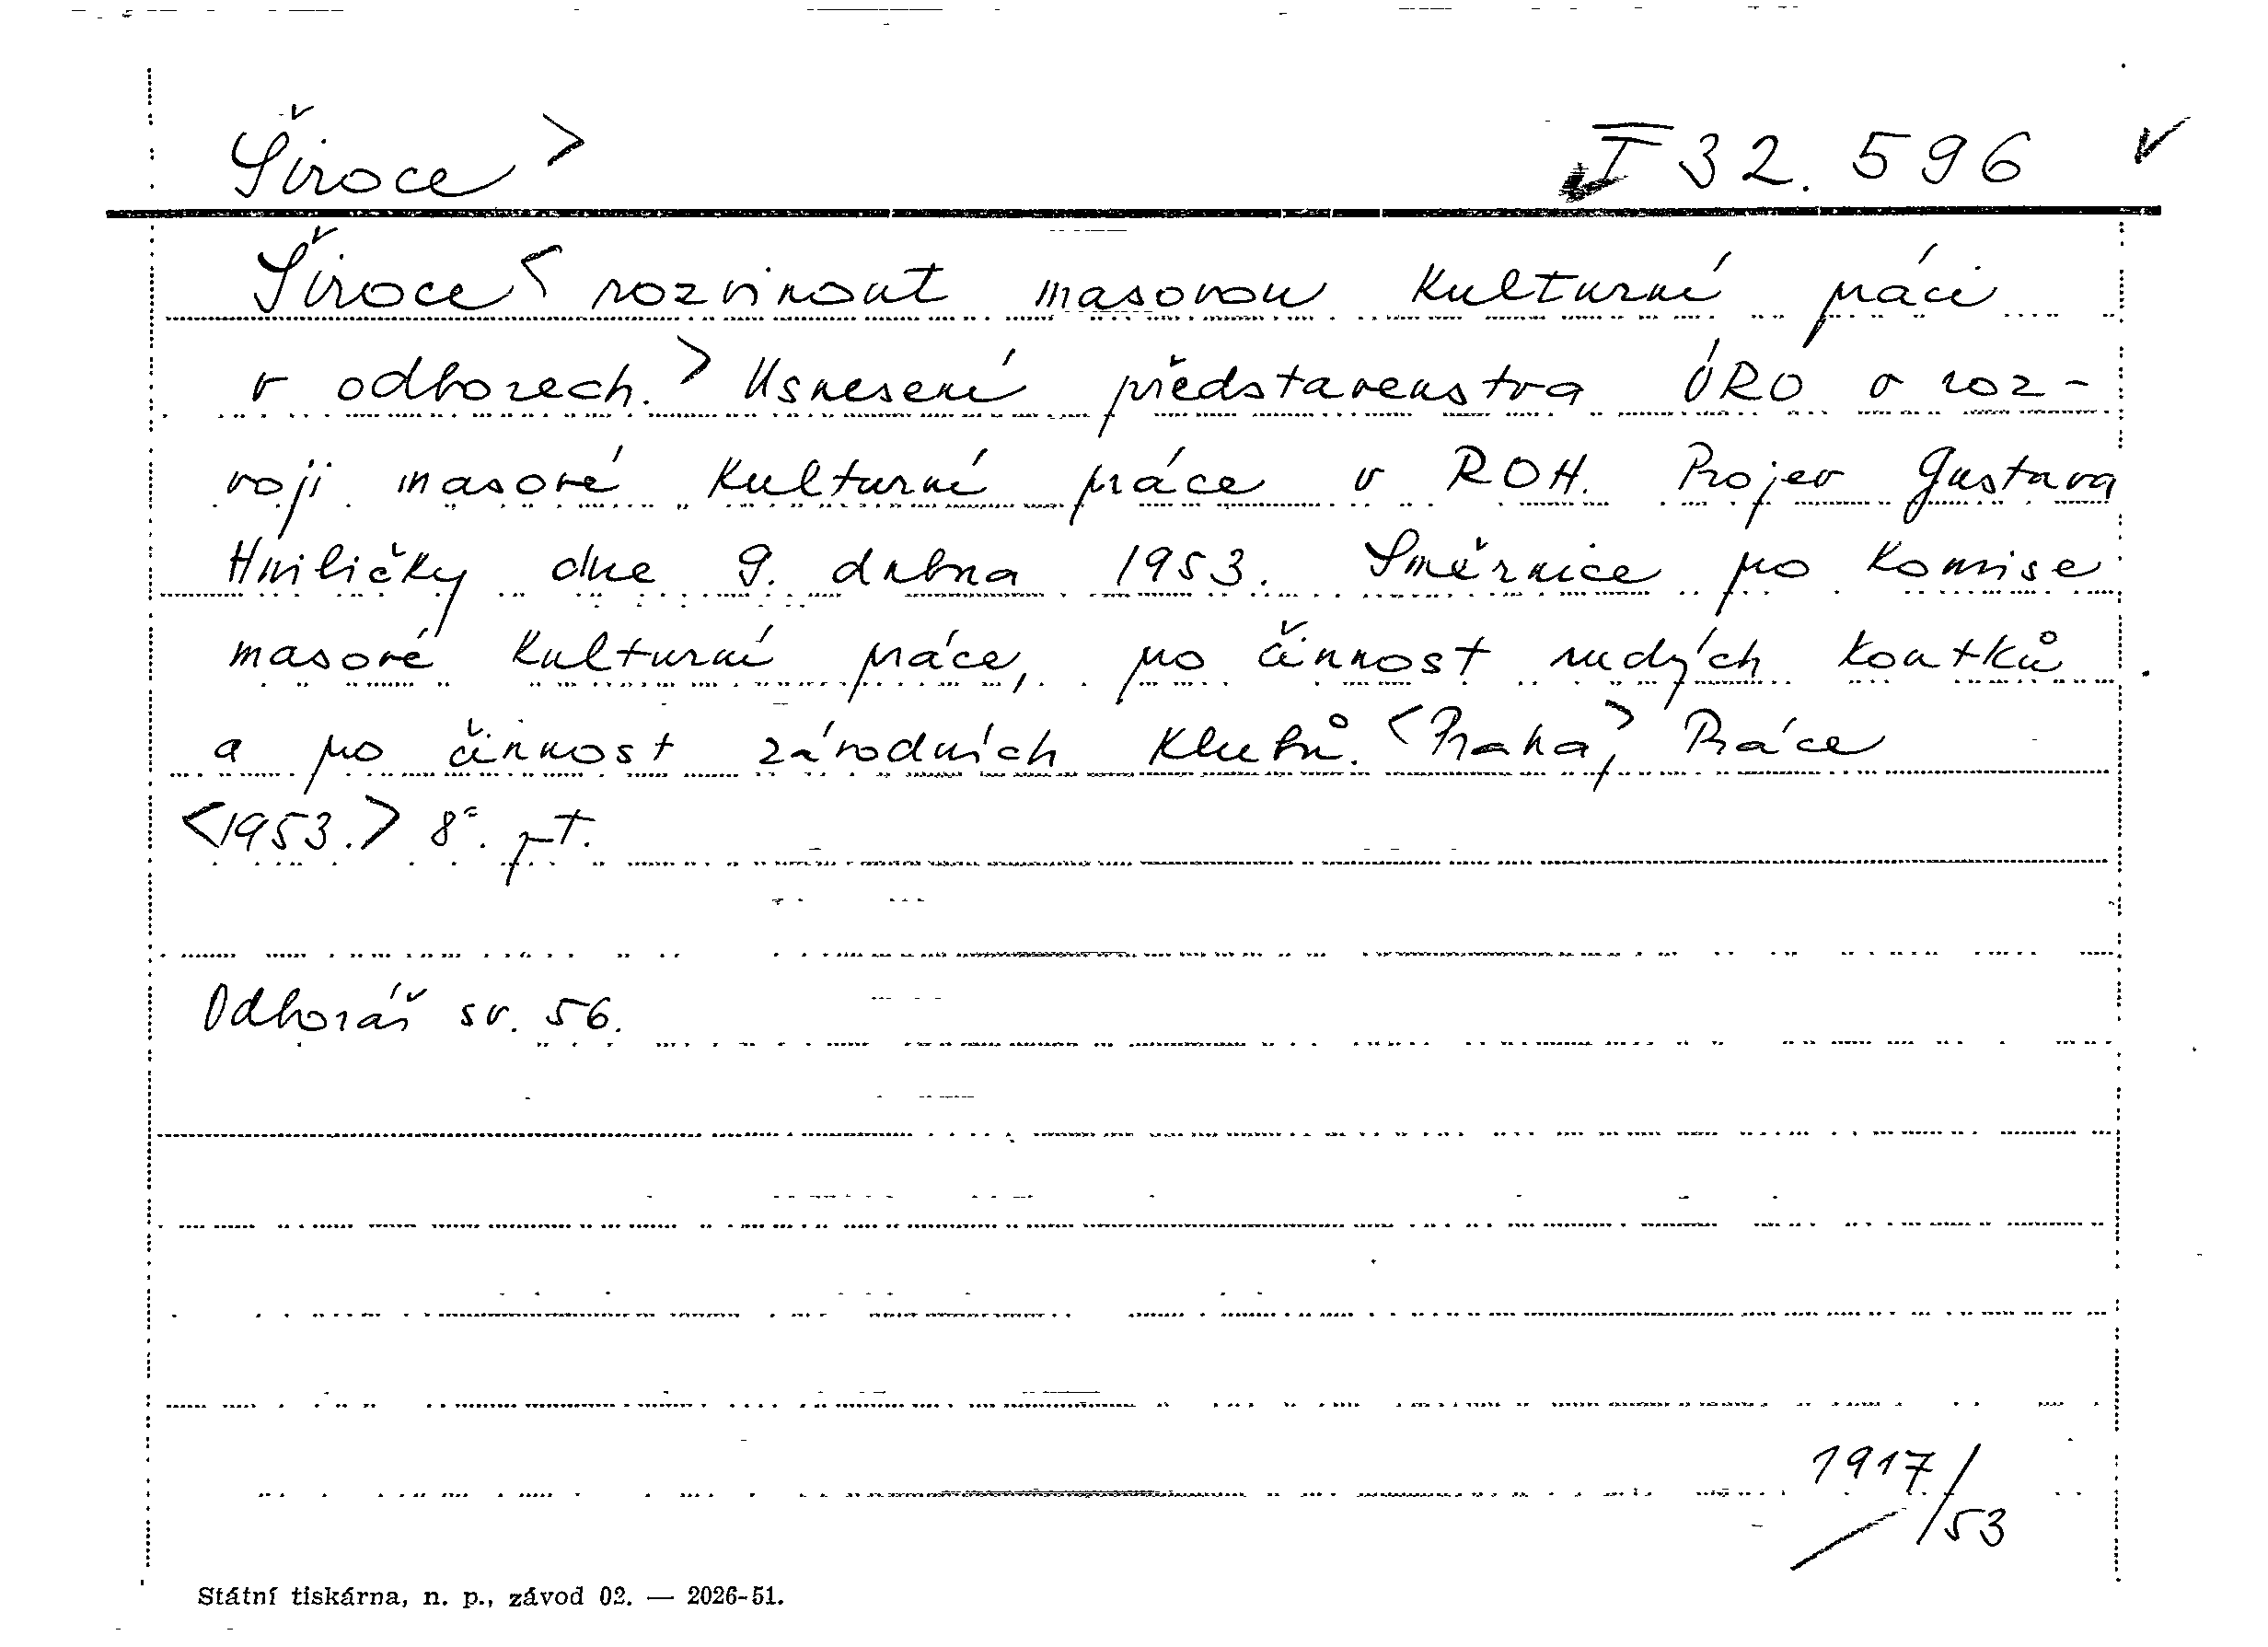 Široce > I 32.596
Široce < rozvinout masovou kulturní práci
v odborech. > Usnesení představenstva ÚRO o roz-
voji masové kulturní práce v ROH. Projev Gustava
Hniličky dne 9. dubna 1953. Směrnice pro komise
masové kulturní práce, pro činnost rudých koutků
a pro činnost závodních klubů. <Praha>, Práce
<1953.> 8°. pt.
Odborář sv. 56.
1917/53
Státní tiskárna, n. p., závod 02. — 2026-51.